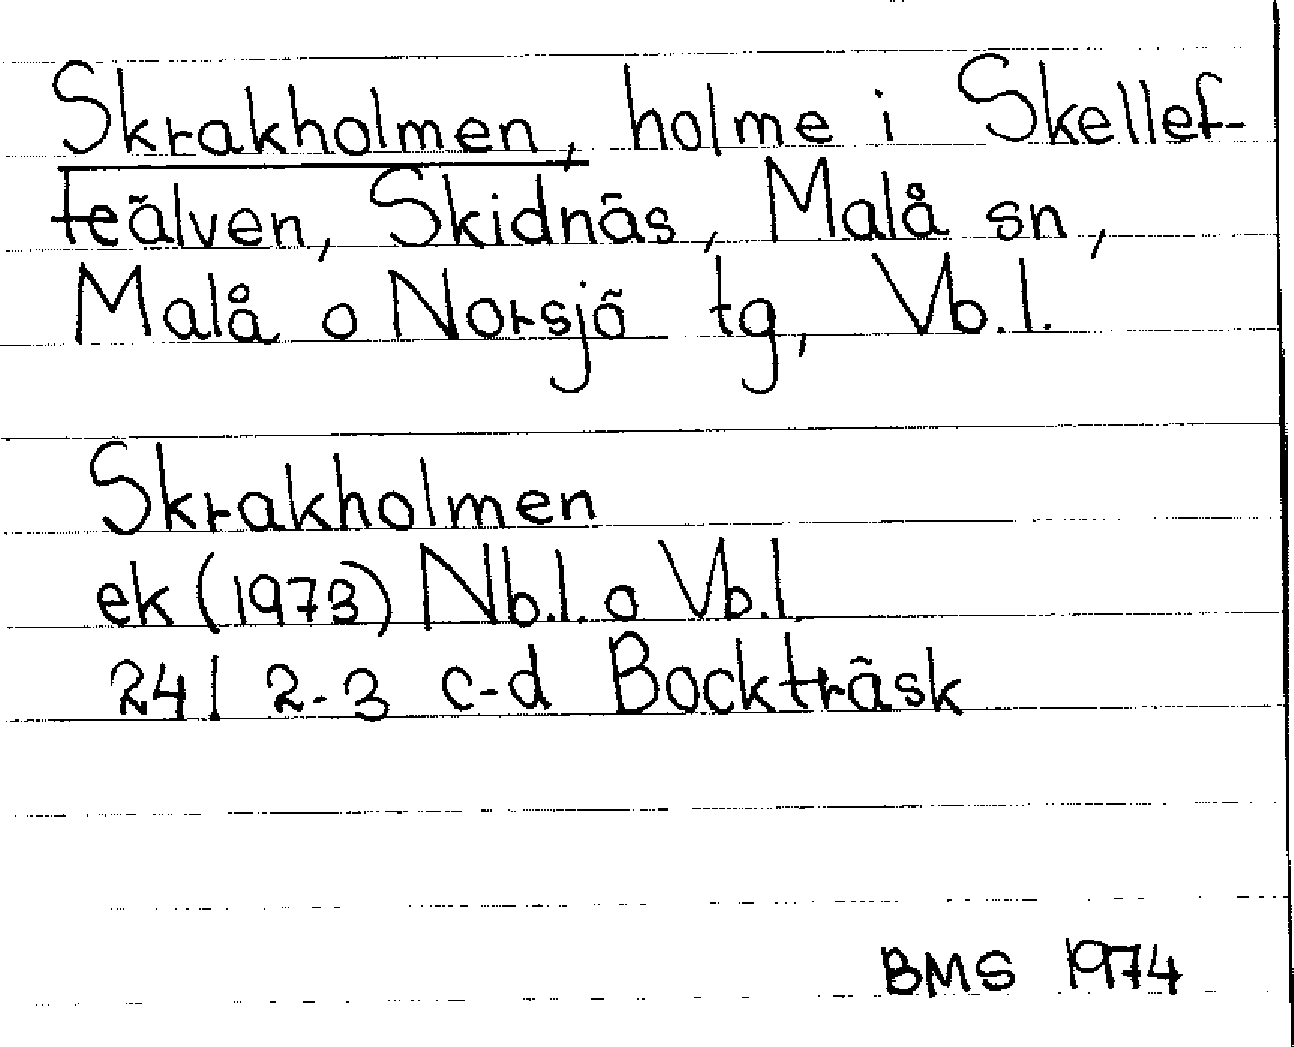 Skrakholmen, holme i Skellef-
teälven, Skidnäs, Malå sn,
Malå o Norsjö tg, Vb.l.
Skrakholmen
ek (1973) Nb.l. o Vb.l
24 I 2-3 c-d Bockträsk
BMS 1974